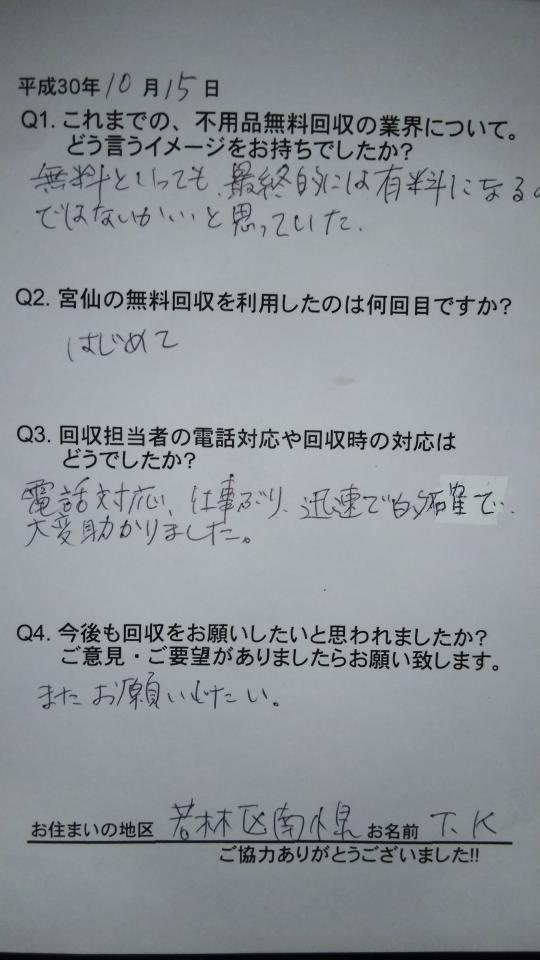 平成30年10月15日
Q1. これまでの、不用品無料回収の業界について。
どう言うイメージをお持ちでしたか?
無料といっても、最終的には有料になるの
ではないかいと思っていた。
Q2. 宮仙の無料回収を利用したのは何回目ですか?
はじめて
Q3. 回収担当者の電話対応や回収時の対応は
どうでしたか?
電話対応、仕事ぶり、迅速で的確で、
大変助かりました。
Q4. 今後も回収をお願いしたいと思われましたか?
ご意見・ご要望がありましたらお願い致します。
またお願いしたい。
お住まいの地区 若林区南小泉 お名前 T. K
ご協力ありがとうございました!!